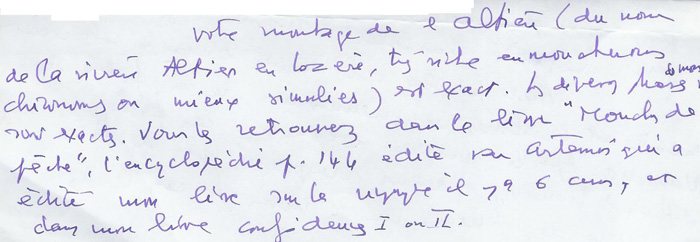 votre montage de l'altière (du nom
de la rivière Altier en Lozère, très riche en moucherons
chironomes ou mieux simulies) est exact. Les divers
sont exacts. Vous les retrouvez dans le livre "Mouches de
pêche", l'encyclopédie p. 144 édité par Artémis qui a
édité mon livre sur la nymphe il y a 6 ans, et
dans mon livre confidences I ou II.